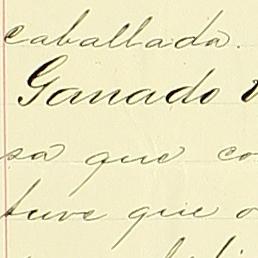 caballada.
Ganado
sa que co
tuve que